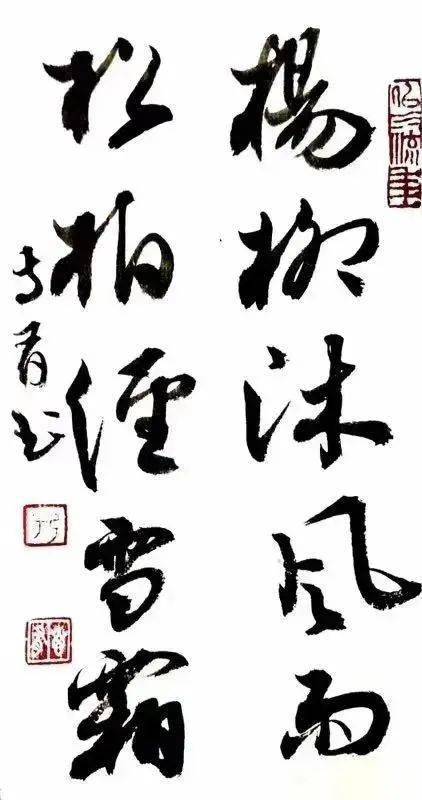 楊柳沐风雨
松柏經雪霜